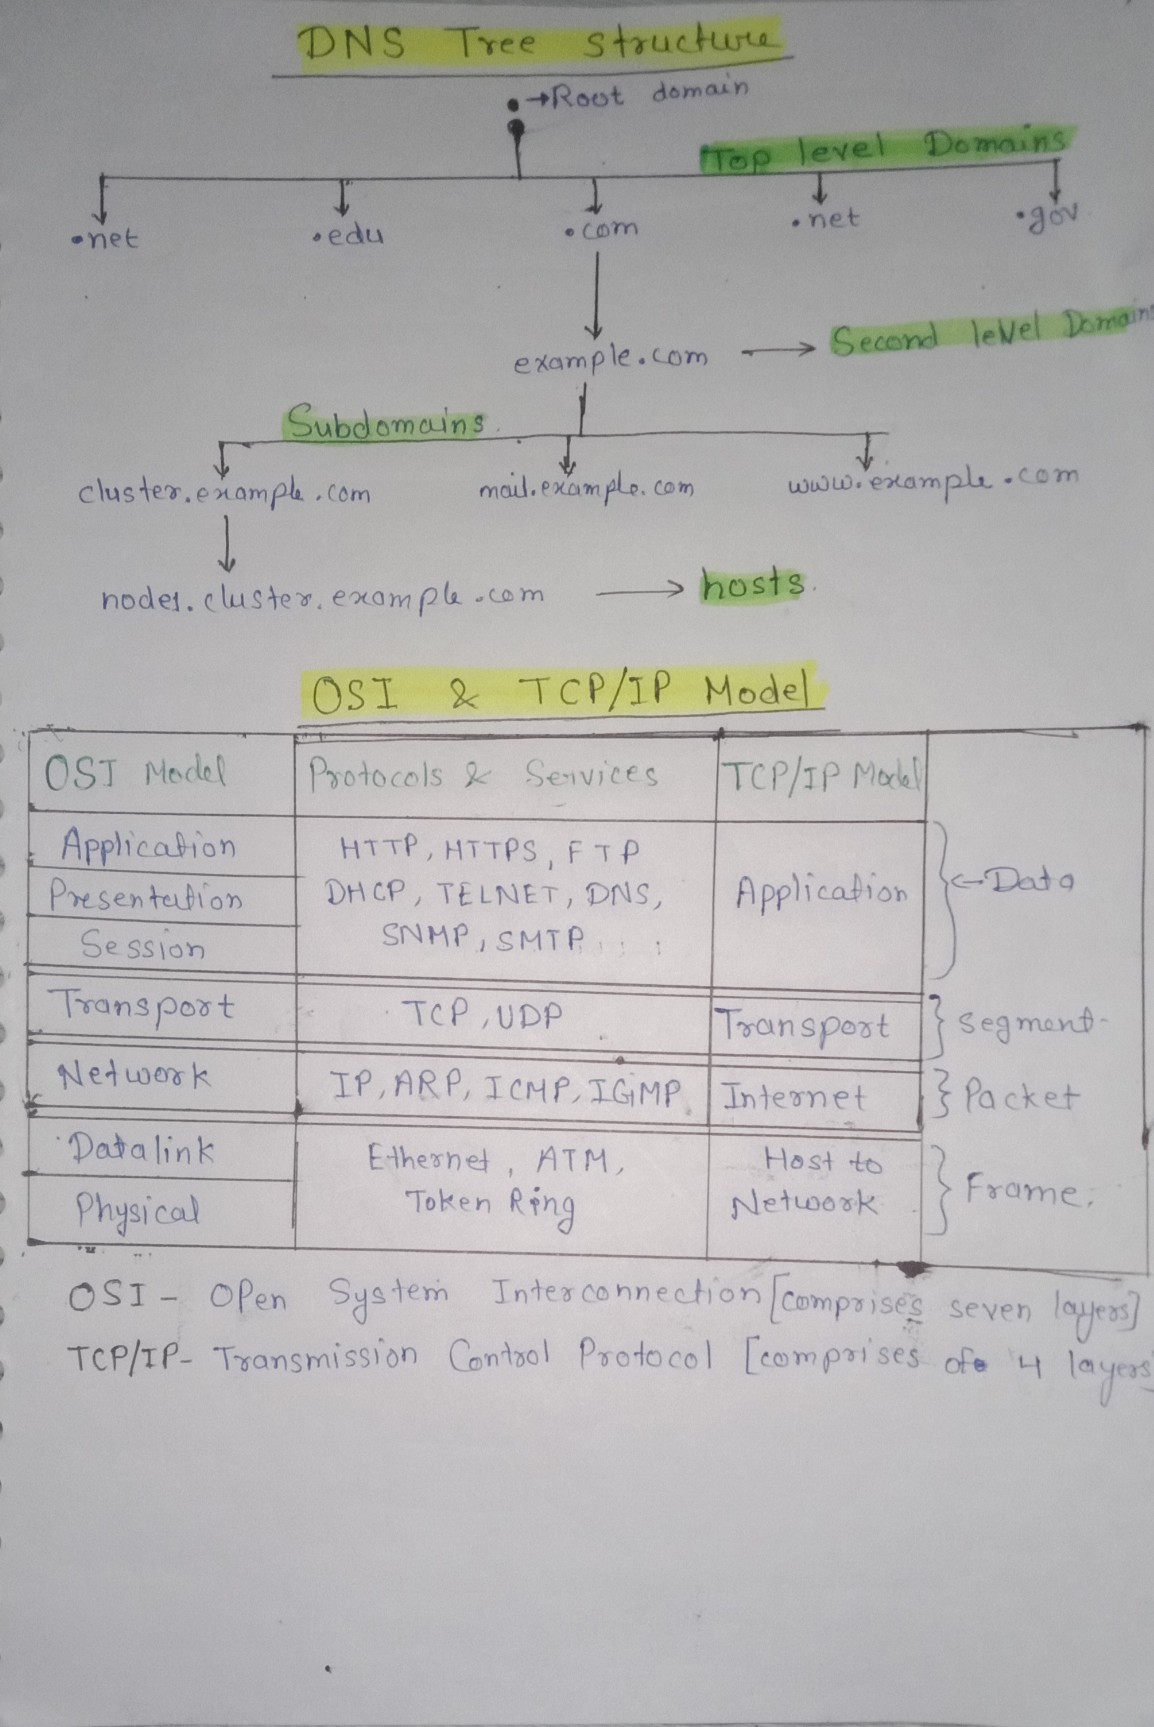 DNS Tree structure
• →Root domain
Top level Domains
.net .edu .com .net .gov
example.com → Second level Domains
Subdomains.
cluster.example.com mail.example.com www.example.com
node1.cluster.example.com → hosts.
OSI & TCP/IP Model
OSI Model Protocols & Services TCP/IP Model
Application HTTP, HTTPS, FTP
Presentation DHCP, TELNET, DNS, Application ← Data
Session SNMP, SMTP
Transport TCP, UDP Transport } segment
Network IP, ARP, ICMP, IGMP Internet } Packet
Datalink Ethernet, ATM, Host to
Physical Token Ring Network } Frame.
OSI - Open System Interconnection [comprises seven layers]
TCP/IP- Transmission Control Protocol [comprises of 4 layers